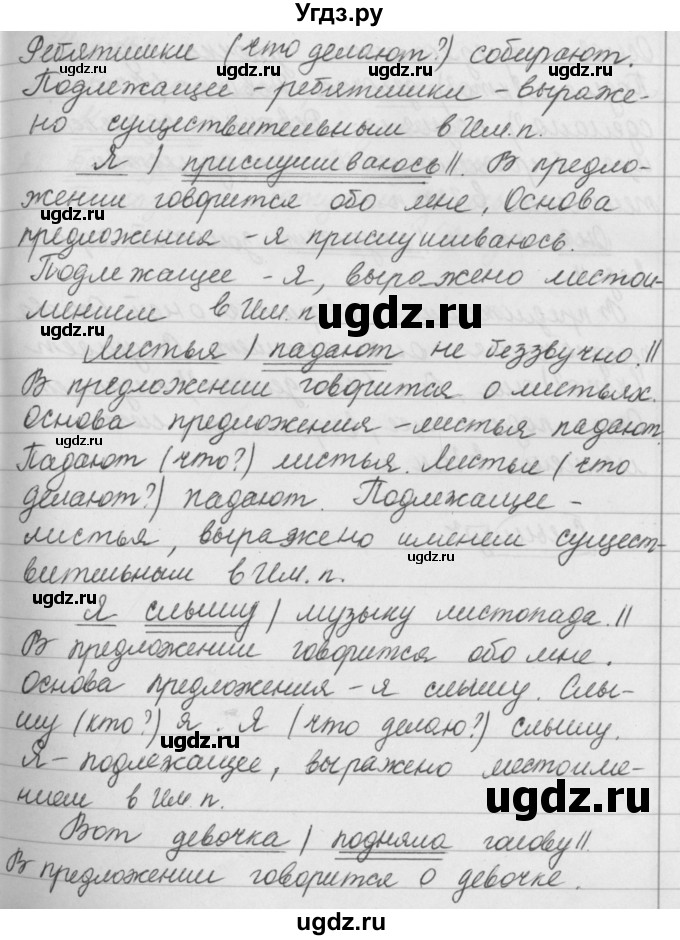 Угдз.ру
Ребятишки (что делают?) собирают.
Подлежащее - ребятишки - выраже-
но существительным в Им.п.
Я | прислушиваюсь ||. В предло-
жении говорится обо мне. Основа
предложения - я прислушиваюсь.
Подлежащее - я, выражено местои-
мением в Им.п.
Листья | падают не беззвучно. ||
В предложении говорится о листьях.
Основа предложения - листья падают.
Падают (что?) листья. Листья (что
делают?) падают. Подлежащее -
листья, выражено именем сущест-
вительным в Им.п.
Я слышу | музыку листопада. ||
В предложении говорится обо мне.
Основа предложения - я слышу. Слы-
шу (кто?) я. Я (что делаю?) слышу.
Я - подлежащее, выражено местоиме-
нием в Им.п.
Вот девочка | подняла голову ||.
В предложении говорится о девочке.
ugdz.ru